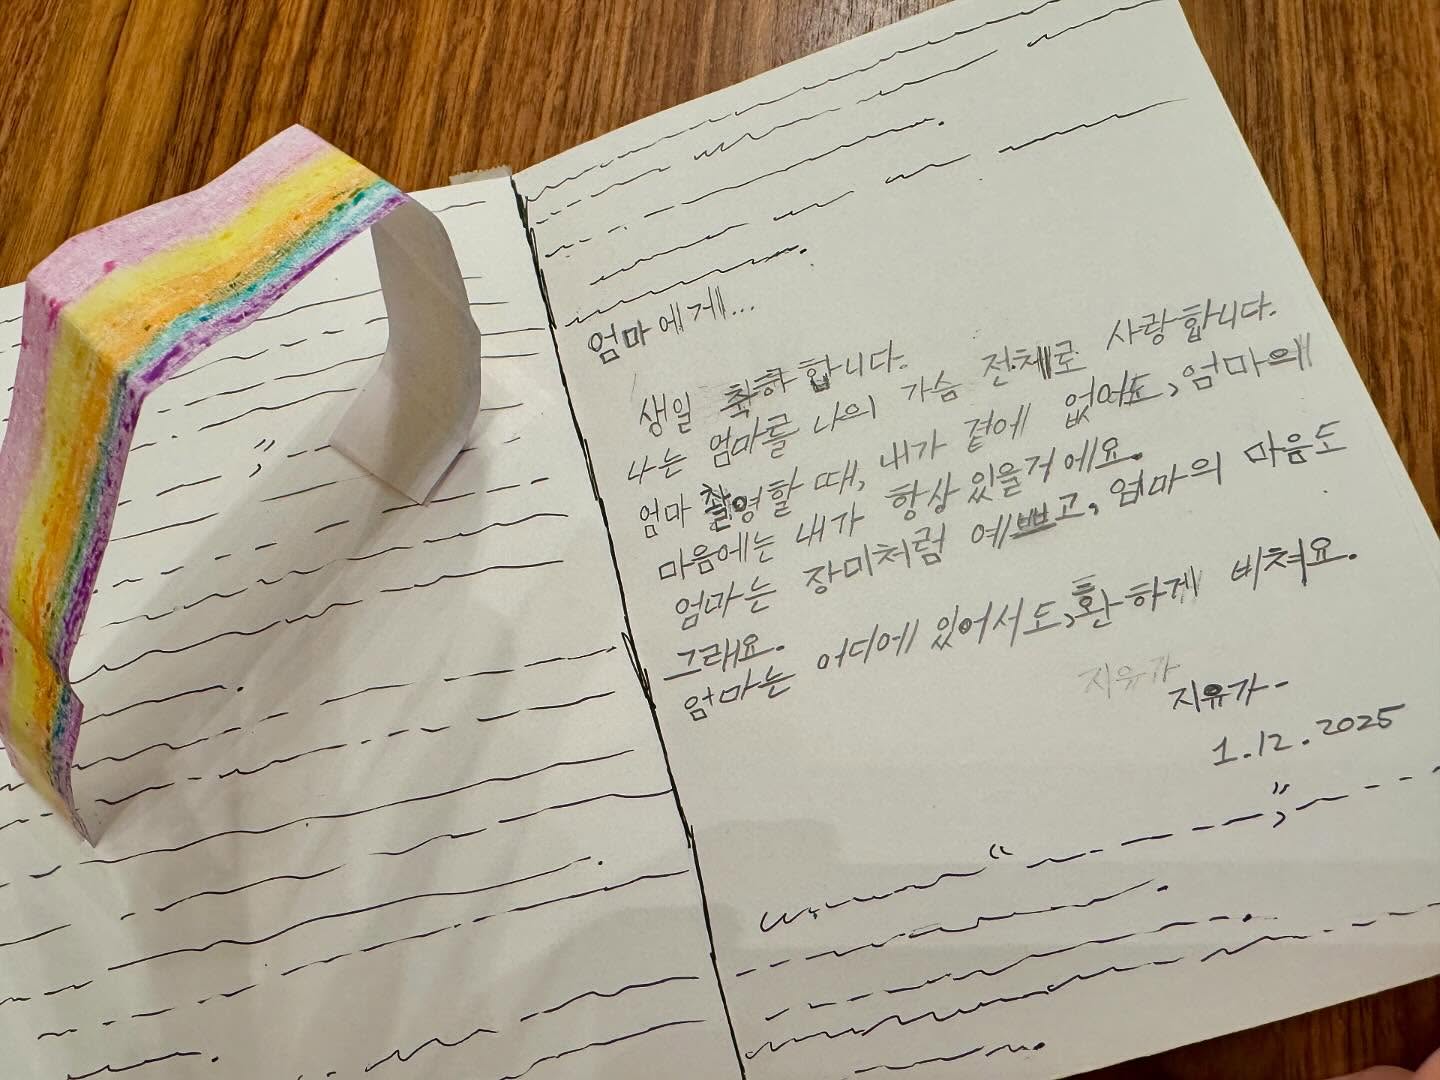 엄마에게...
생일 축하합니다.
나는 엄마를 나의 가슴 전체로 사랑합니다.
엄마 촬영할 때, 내가 곁에 없어도, 엄마의
마음에는 내가 항상 있을거에요.
엄마는 장미처럼 예쁘고, 엄마의 마음도
그래요.
엄마는 어디에 있어서도, 환하게 비쳐요.
지유가
지유가-
1.12.2025